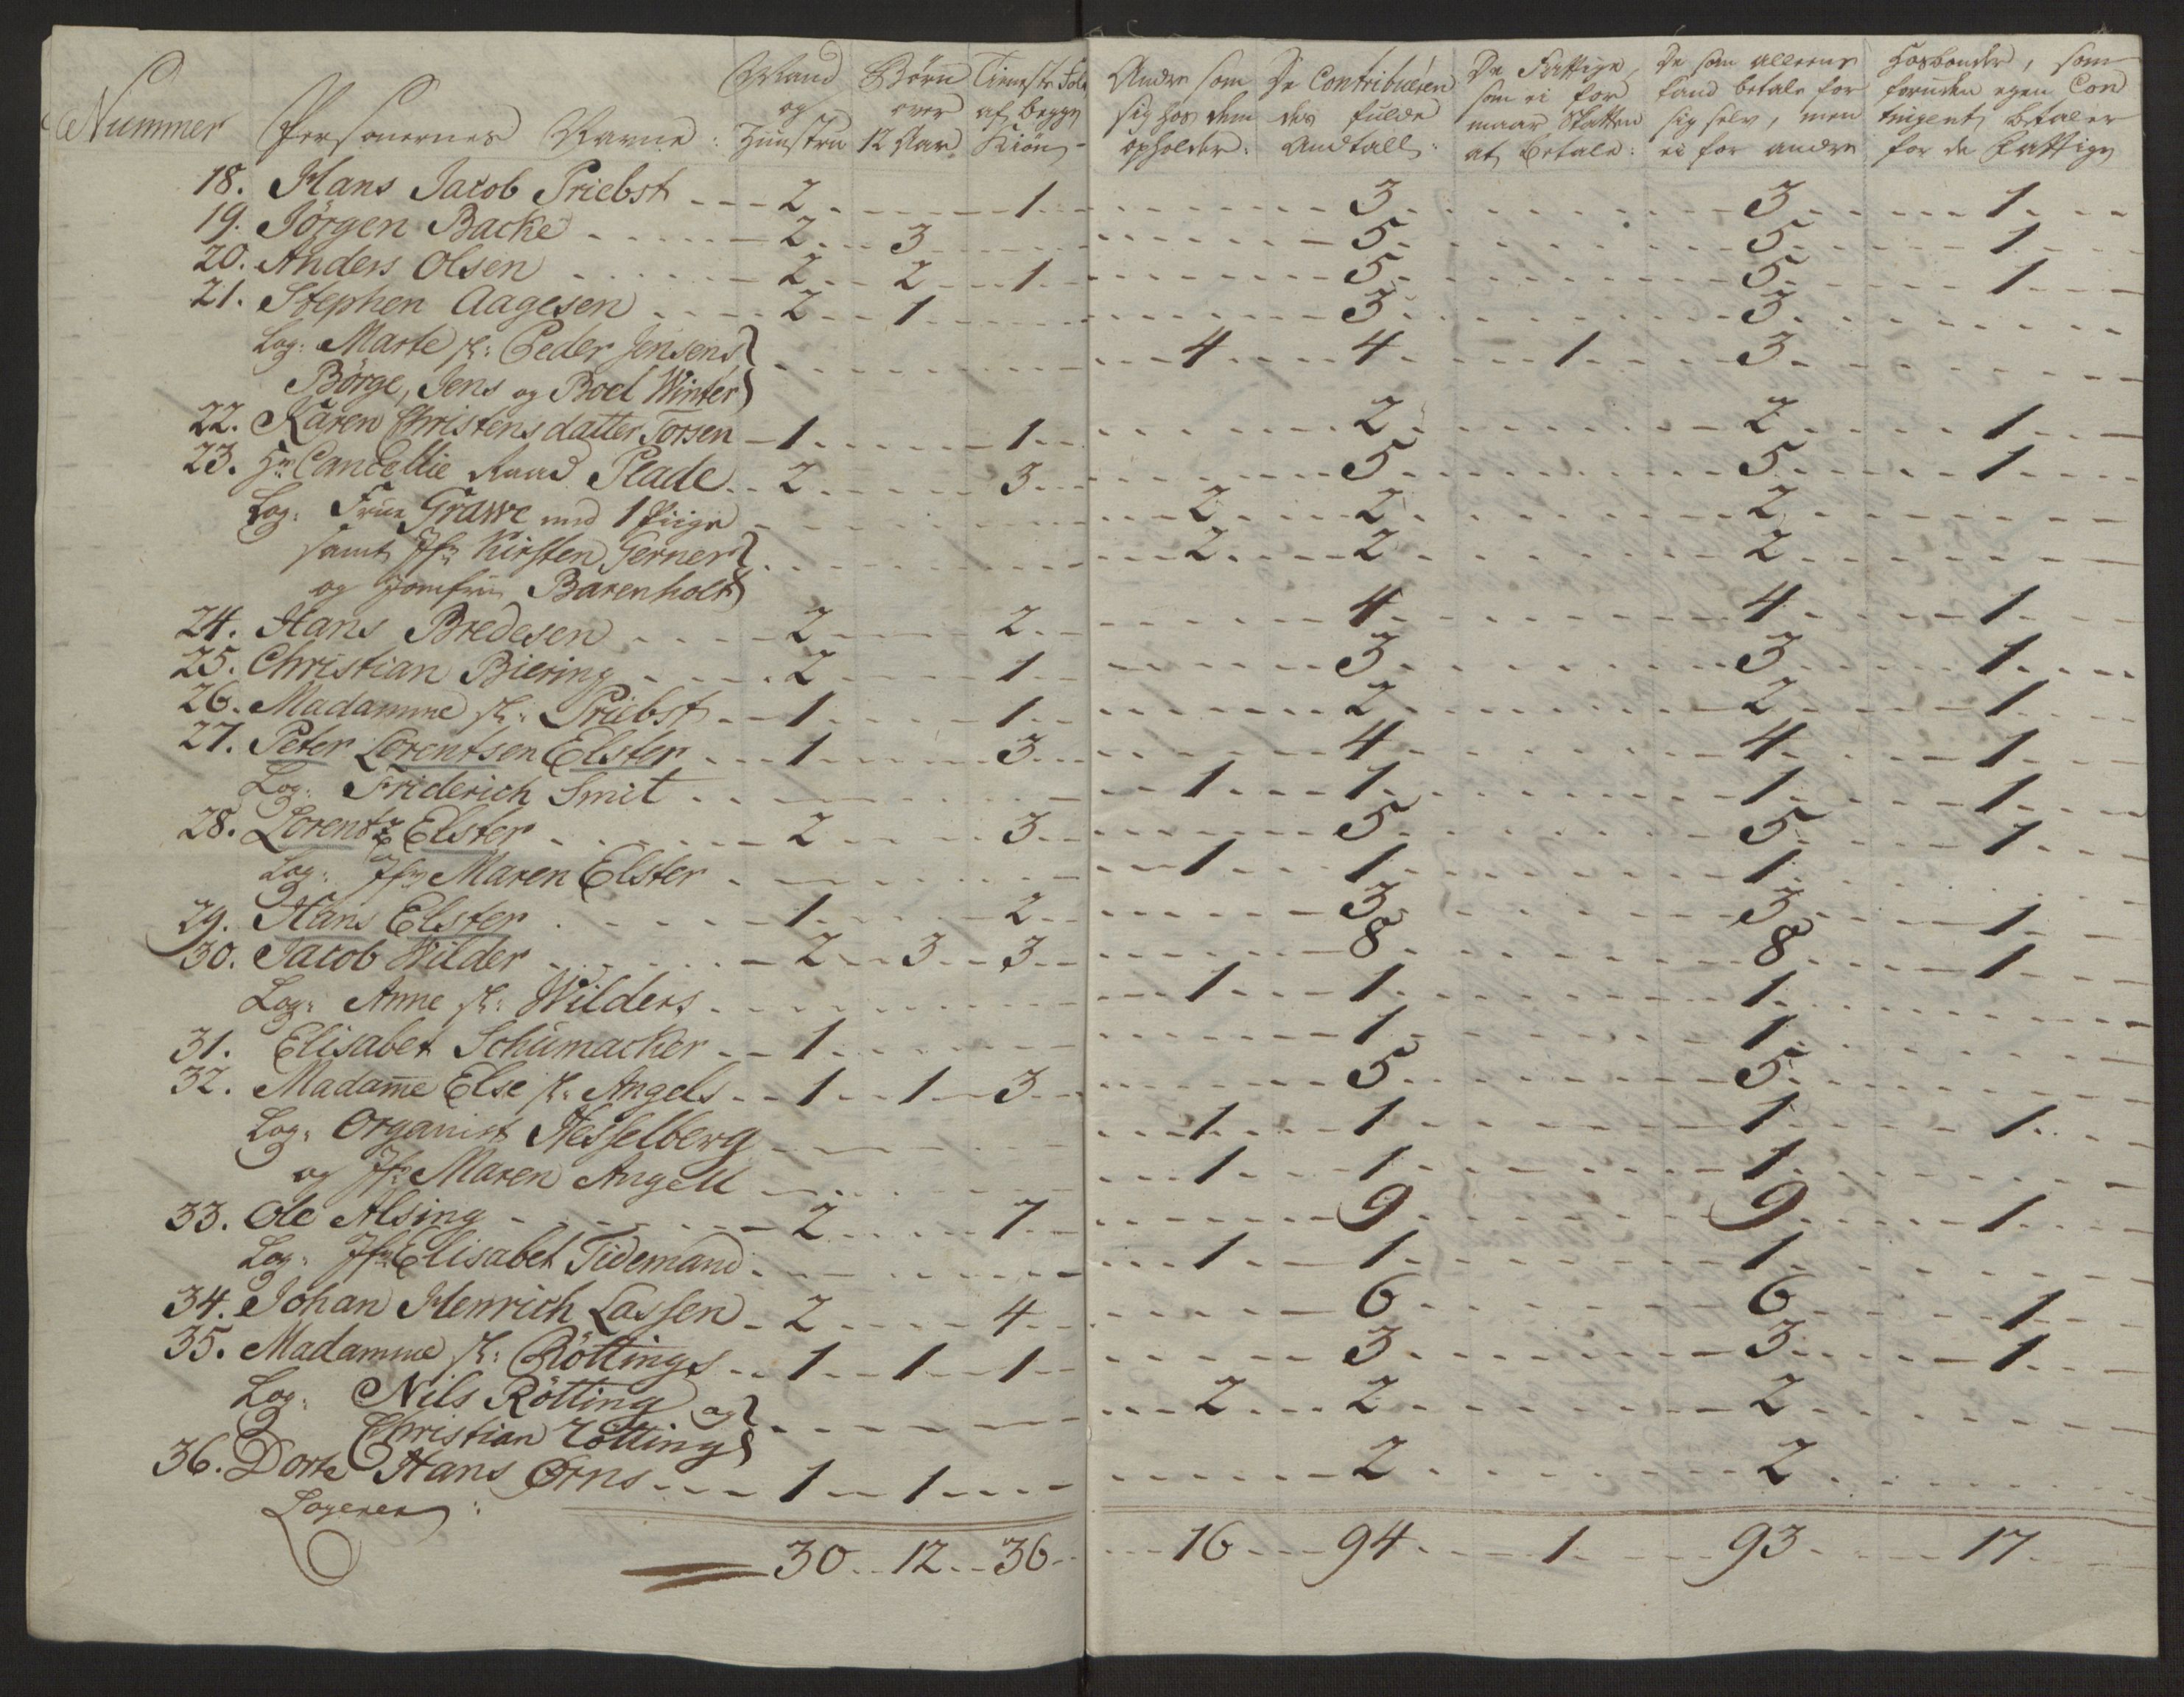 Nummer Personernes Navne: Mand og Hunstru Børn over 12 Aar Tieneste Folk af begge Kiön Andre som sig hos dem opholder: De Contribuerendes fulde Andtall: De Fattige, som ei formaar Skatten at betale: De som alleene kand betale for sig selv, men ei for andre Hosbonder, som foruden egen Contingent betaler for de Fattige
18. Hans Jacob Priebst 2 1 3 3 1
19. Jörgen Backe 2 3 5 5 1
20. Anders Olsen 2 2 1 5 5 1
21. Stephen Aagesen 2 1 3 3
Log: Marte sl: Peder Jensens
Börge, Jens og Boel Winter 4 4 1 3
22. Karen Christensdatter Torsen 1 1 2 2 1
23. Hr Cancellie Raad Plade 2 3 5 5 1
Log: Frue Grawe med 1 Piige 2 2 2
samt Jfr Kirsten Gerner
og Jomfru Barenholt 2 2 2
24. Hans Bredesen 2 2 4 4 1
25. Christian Biering 2 1 3 3 1
26. Madamme sl: Priebst 1 1 2 2 1
27. Peter Lorentsen Elster 1 3 4 4 1
Log: Friderich Smit 1 1 1 1
28. Lorentz Elster 2 3 5 5 1
Log: Jfr Maren Elster 1 1 1
29. Hans Elster 1 2 3 3 1
30. Jacob Wilder 2 3 3 8 8 1
Log: Anne sl: Wilders 1 1 1
31. Elisabet Schumacker 1 1 1
32. Madame Else sl: Angels 1 1 3 5 5
Log: Organist Hesselberg 1 1 1 1
og Jfr Maren Angell 1 1 1
33. Ole Alsing 2 7 9 9 1
Log: Jfr Elisabet Tidemand 1 1 1
34. Johan Henrich Lassen 2 4 6 6 1
35. Madamme sl: Röttings 1 1 1 3 3 1
Log: Nils Rötting og
Christian Rötting 2 2 2
36. Dorte Hans Ørns 1 1 2 2
Logerer:
30 12 36 16 94 1 93 17